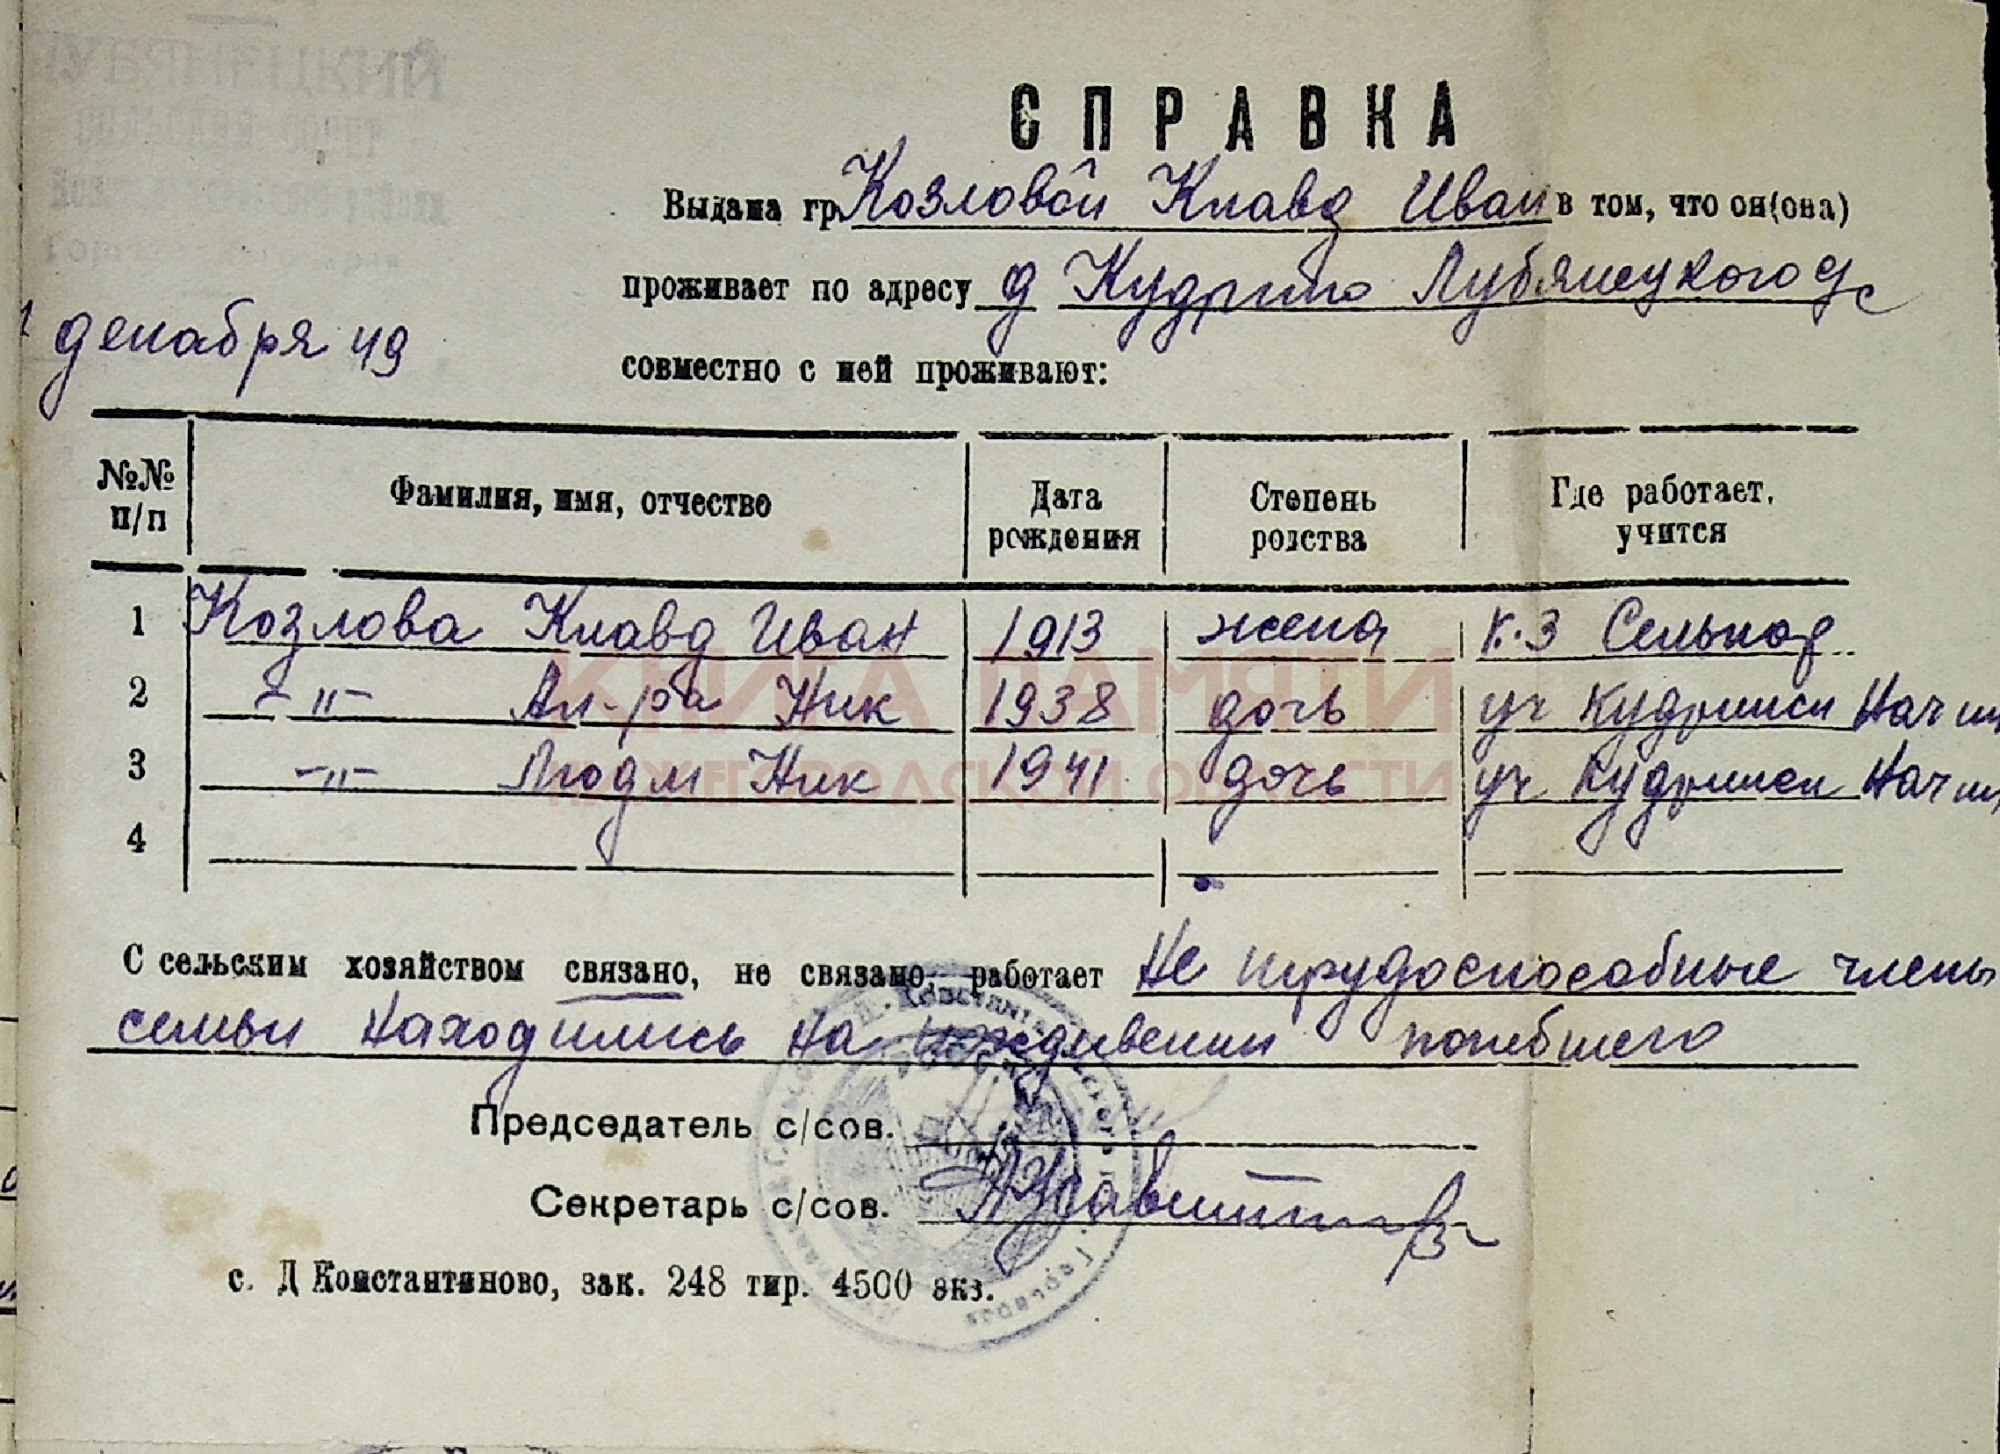 ЛУБЯНЕЦКИЙ
СЕЛЬСКИЙ СОВЕТ
района
декабря 49
СПРАВКА
Выдана гр. Козловой Клавд Иван в том, что он(она)
проживает по адресу д Кудрино Лубянецкого
совместно с ней проживают:
№№ п/п Фамилия, имя, отчество Дата рождения Степень родства Где работает, учится
1 Козлова Клавд Иван 1913 жена к-з Сельхоз
2 -"- Ал-ра Ник 1938 дочь уч Кудринск Нач шк
3 -"- Людм Ник 1941 дочь уч Кудринск Нач шк
4
КНИГА ПАМЯТИ
НИЖЕГОРОДСКОЙ ОБЛАСТИ
С сельским хозяйством связано, не связано, работает Не трудоспособные члены
семьи находились на иждивении погибшего
Председатель с/сов.
Секретарь с/сов.
с. Д Константиново, зак. 248 тир. 4500 экз.